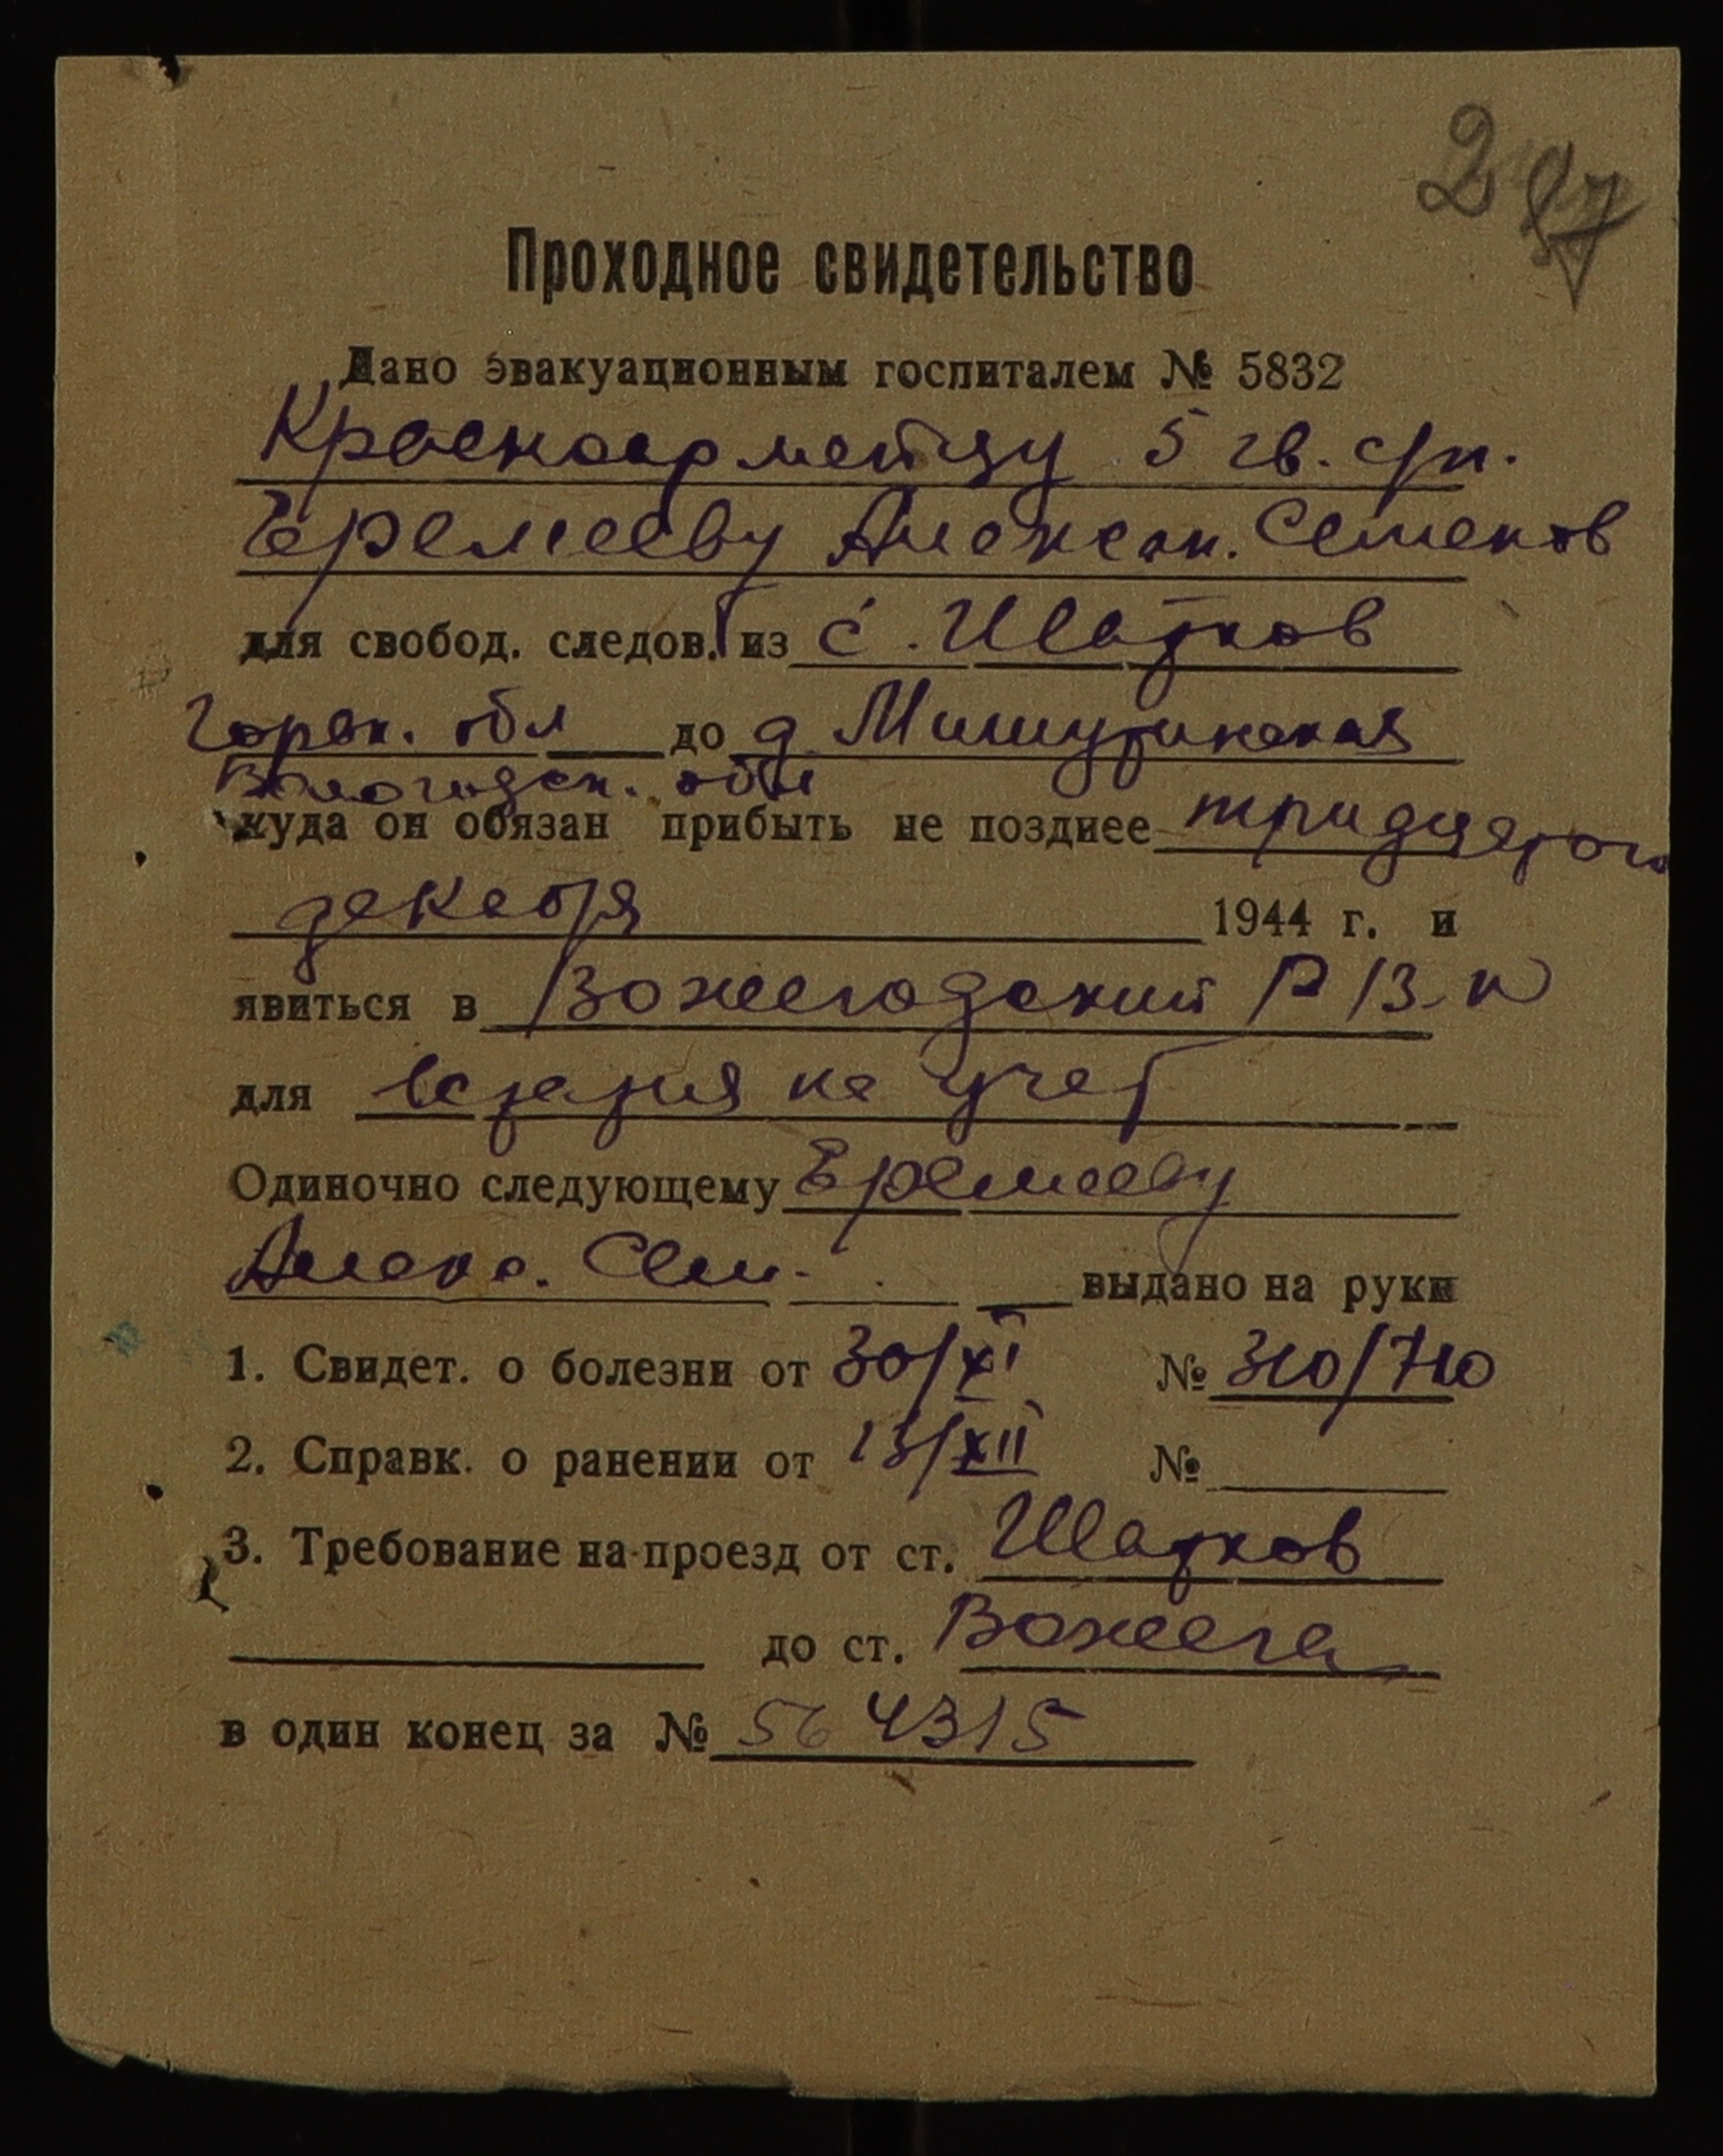 Проходное свидетельство
Дано эвакуационным госпиталем № 5832
Красноармейцу 5 гв. с/п.
Еремееву Алексан. Семенов
для свобод. следов. из с. Шатков
Горьк. обл до д. Мишутинская
Вологодск. обл
куда он обязан прибыть не позднее тридцатого
декабря 1944 г. и
явиться в Вожегодский РВК
для встатия на учет
Одиночно следующему Еремееву
Алекс. Сем. выдано на руки
1. Свидет. о болезни от 30/XI № 310/710
2. Справк. о ранении от 13/XII №
3. Требование на проезд от ст. Шатков
до ст. Вожега
в один конец за № 564315